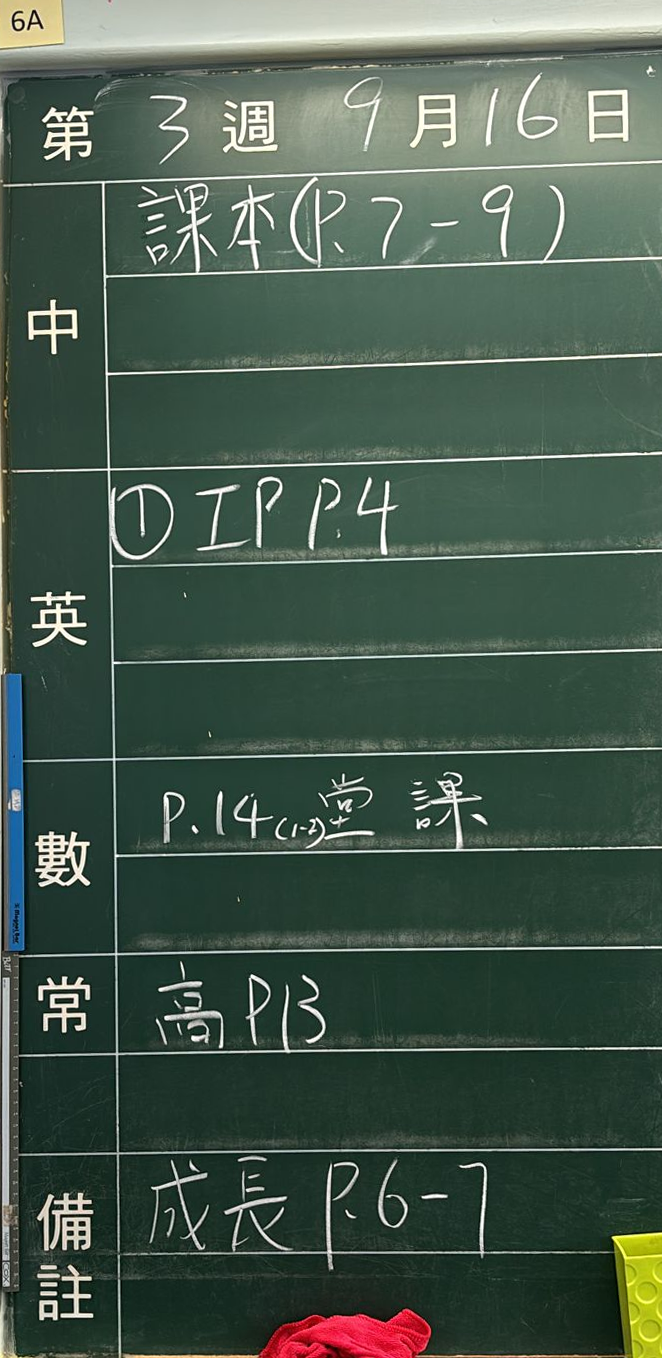 6A
第 3 週 9 月 16 日
中
課本(P.7-9)
英
① IP P.4
數
P.14(1-2)堂課
常
高 P13
備註
成長 P.6-7